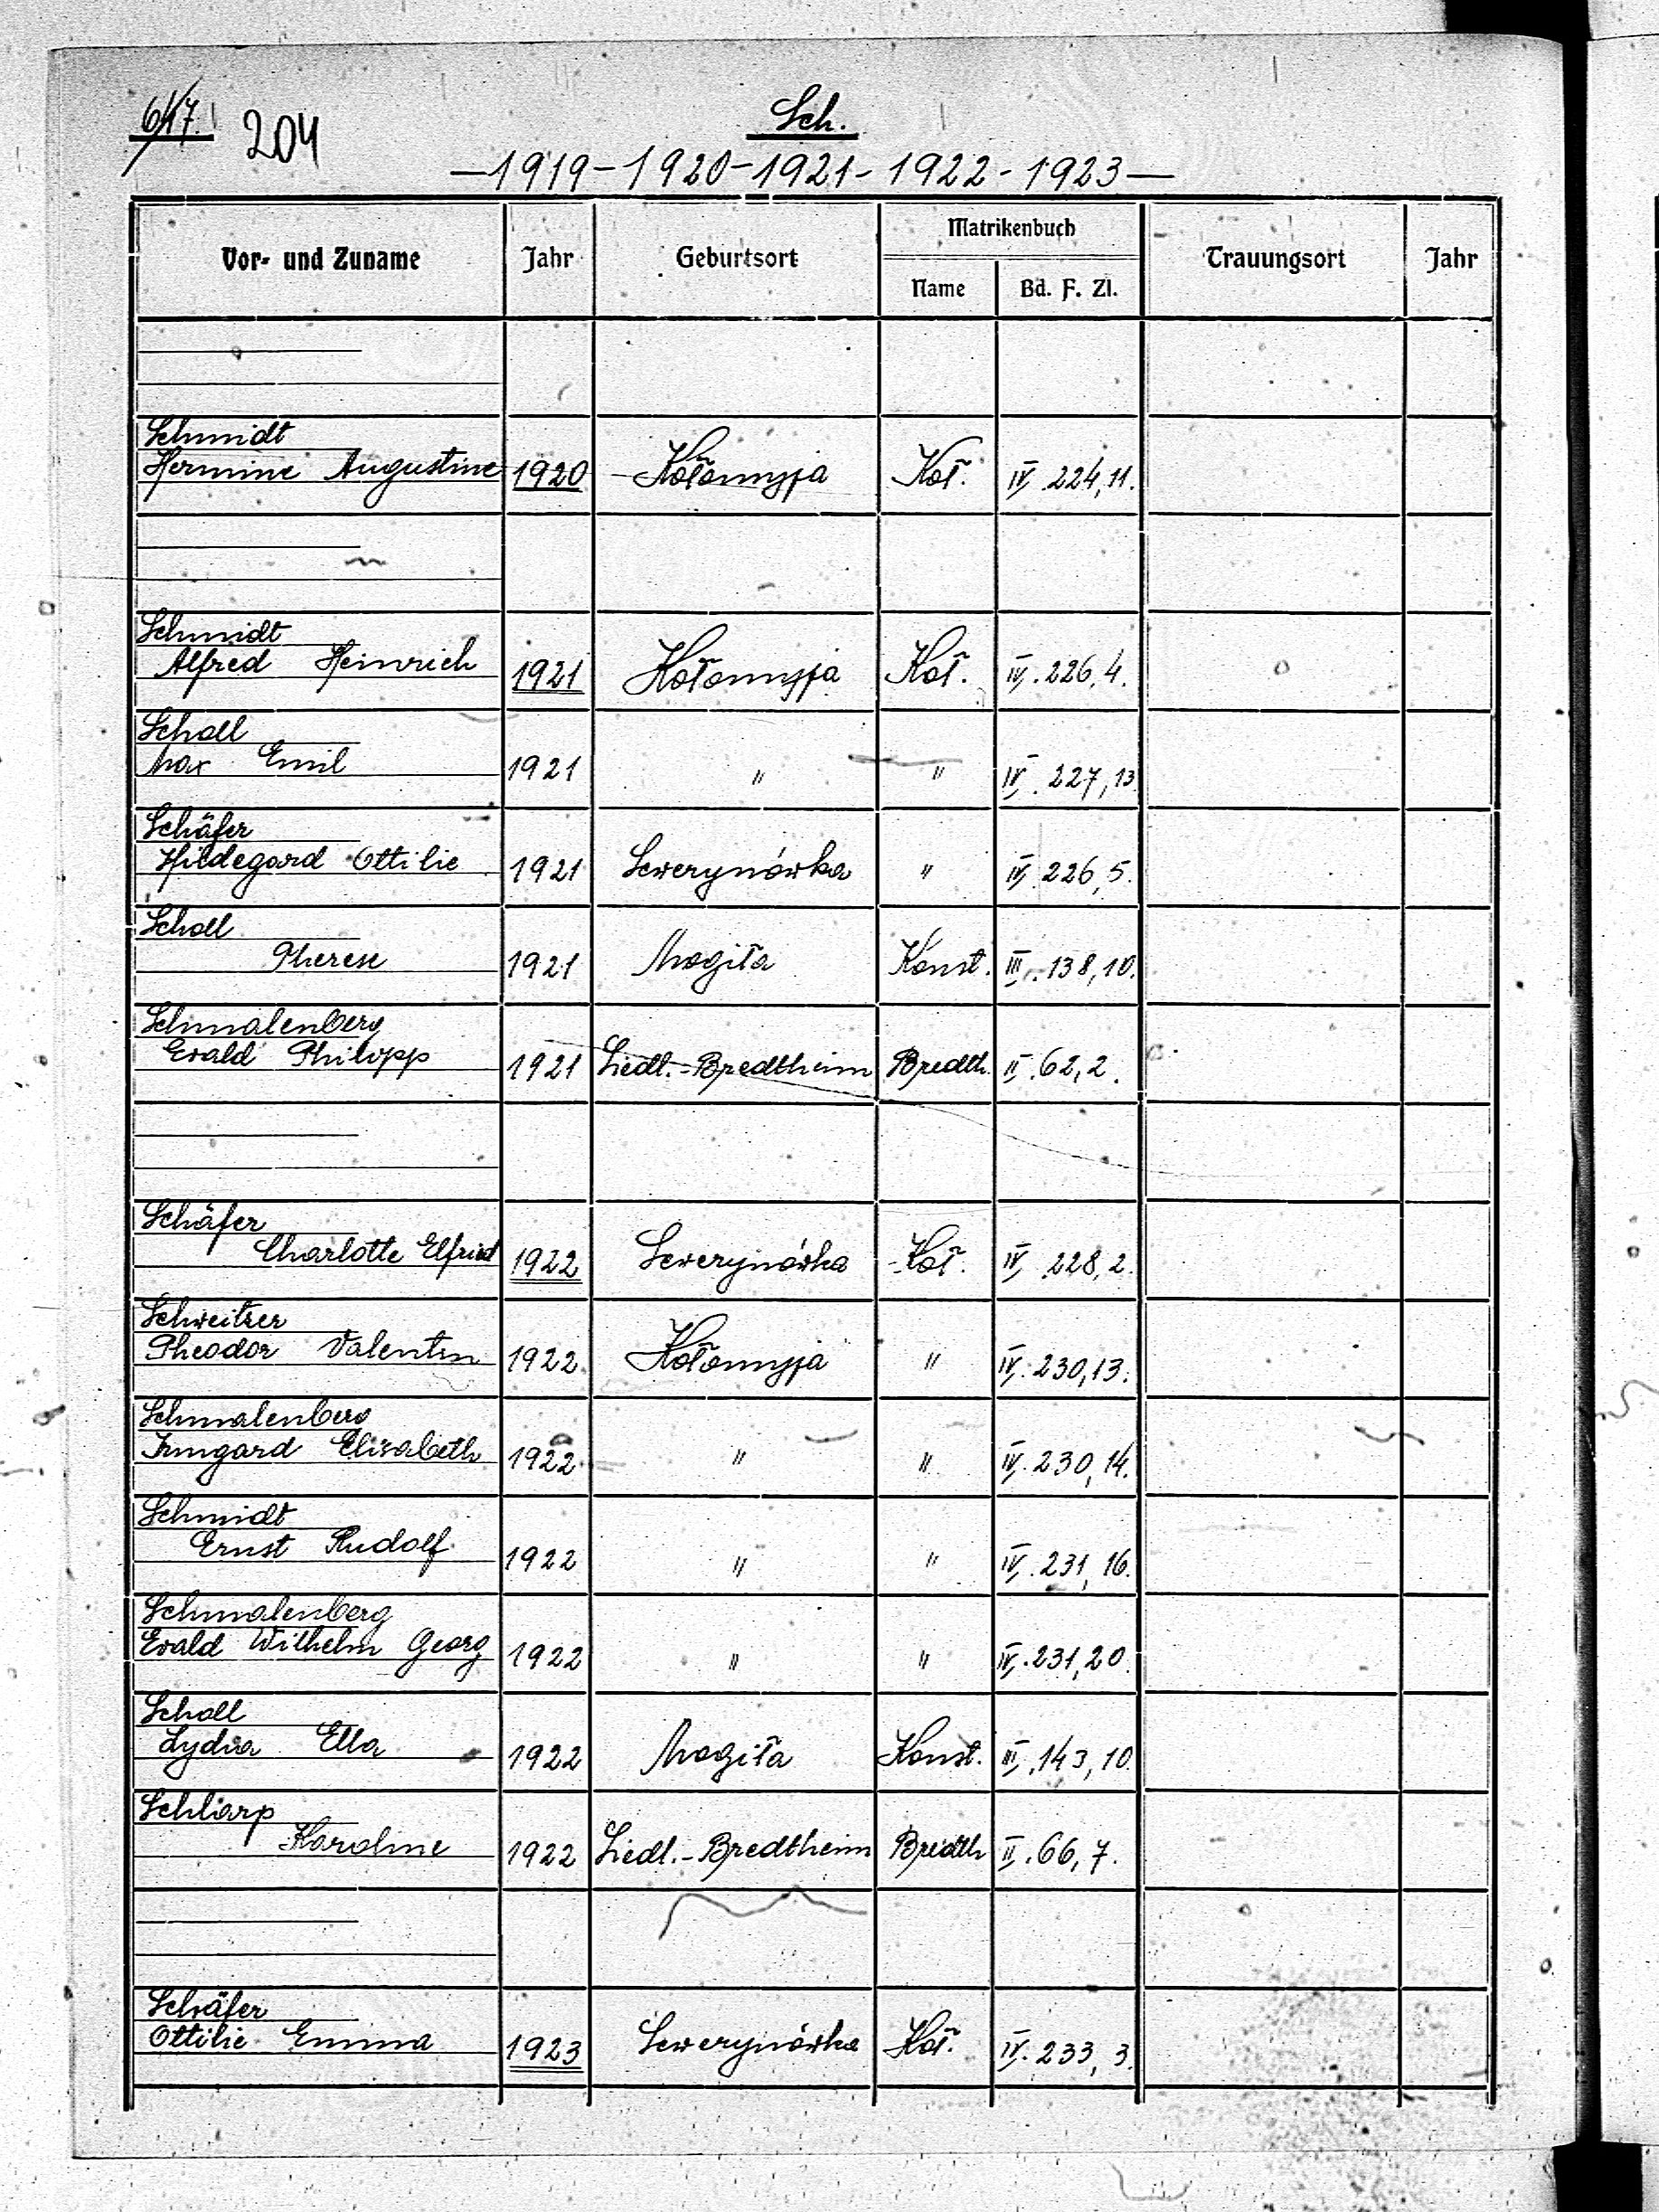 617. 204 Sch.
—1919-1920-1921-1922-1923—
Vor- und Zuname Jahr Geburtsort Matrikenbuch Trauungsort Jahr
Name Bd. F. Zl.
Schmidt
Hermine Augustine 1920 Kołomyja Koł. IV. 224, 11.
Schmidt
Alfred Heinrich 1921 Kołomyja Koł. IV. 226, 4.
Scholl
Max Emil 1921 " " IV. 227, 13
Schäfer
Hildegard Ottilie 1921 Sewerynówka " IV. 226, 5.
Scholl
Therese 1921 Mogiła Konst. III. 138, 10.
Schmalenberg
Ewald Philipp 1921 Siedl.-Bredtheim Bredth. II. 62, 2.
Schäfer
Charlotte Elfried 1922 Sewerynówka Koł. IV. 228, 2.
Schweitzer
Theodor Valentin 1922 Kołomyja " IV. 230, 13.
Schmalenberg
Irmgard Elisabeth 1922 " " IV. 230, 14.
Schmidt
Ernst Rudolf 1922 " " IV. 231, 16.
Schmalenberg
Ewald Wilhelm Georg 1922 " " IV. 231, 20.
Scholl
Lydia Ella 1922 Mogiła Konst. III. 143, 10.
Schlarp
Karoline 1922 Siedl.-Bredtheim Bredth II. 66, 7.
Schäfer
Ottilie Emma 1923 Sewerynówka Koł. IV. 233, 3.